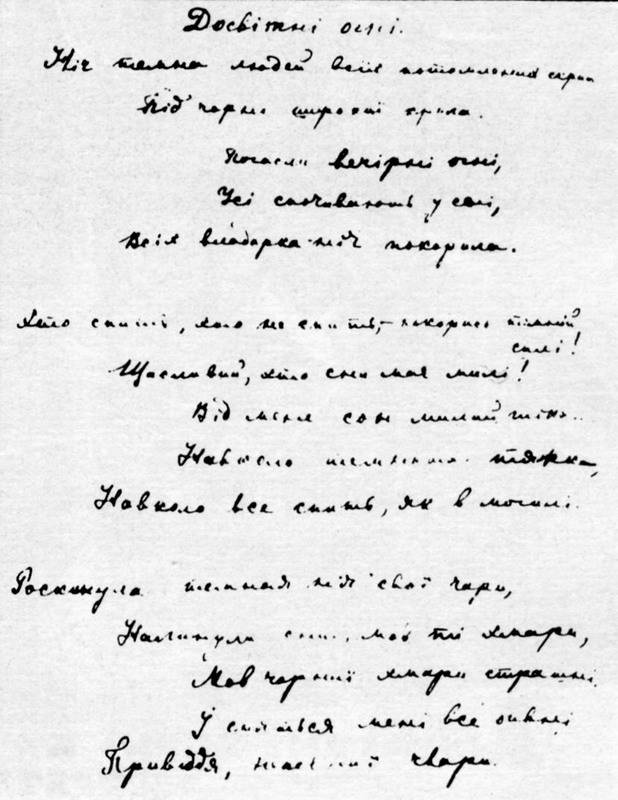 Досвітні огні.
Ніч темна людей всіх потомлених скрила
Під чорні широкії крила.
Погасли вечірні огні,
Усі спочивають у сні,
Всіх владарка ніч покорила.
Хто спить, хто не спить, – покорись темній
силі!
Щасливий, хто сни має милі!
Від мене сон милий тіка..
Навколо темнота тяжка,
Навколо все спить, як в могилі.
Роскинула темная ніч свої чари,
мов ті хмари,
Мов чорнії хмари страшні.
У сняться мені все
Привіддя, чвари.